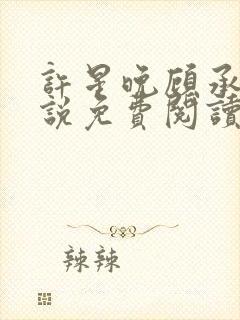 許星晚顧承
說免費閱讀
辣辣